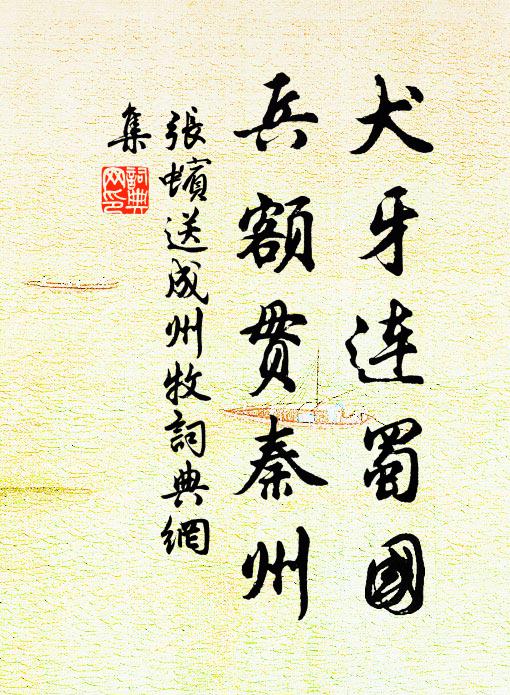 犬牙连蜀國
兵额贯秦州
張蠙送成州牧詞典網
集
詞典网印